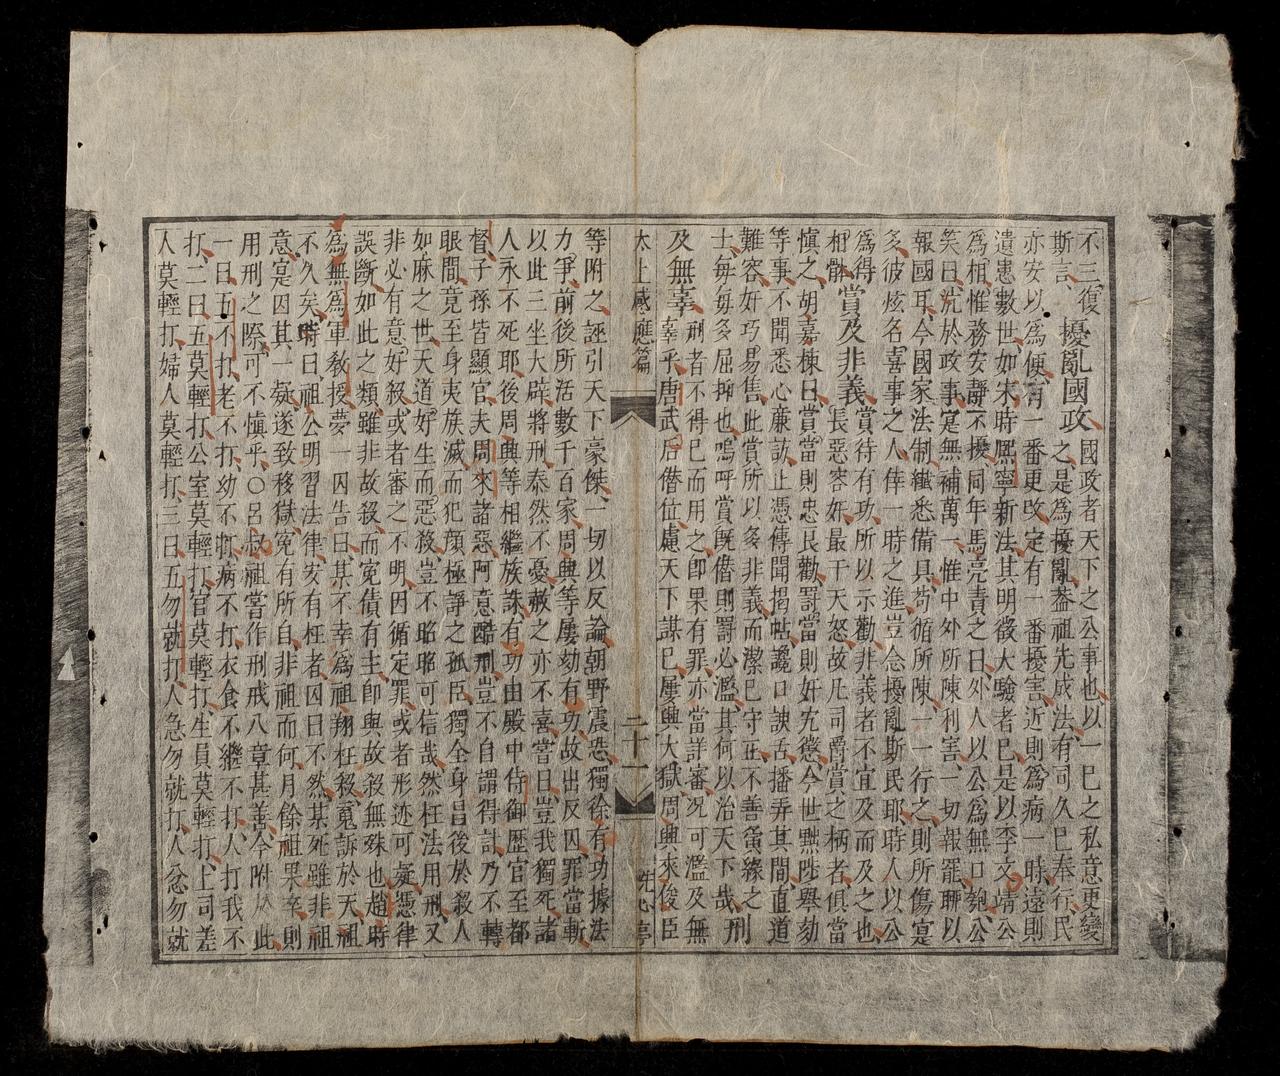 不三復
斯言　擾亂國政　國政者天下之公事也以一己之私意更變
亦安以為便有一番更改定有一番擾害近則為病一時遠則
遺患數世如宋時熙寧新法其明徵大驗者已是以李文靖公
為相惟務安靜不擾同年馬亮責之曰外人以公為無口匏公
笑曰沆於政事寔無補萬一惟中外所陳利害一切報罷聊以
報國耳今國家法制纖悉備具茍循所陳一一行之則所傷寔
多彼炫名喜事之人倖一時之進豈念擾亂斯民耶時人以公
為得　賞及非義　賞待有功所以示勸非義者不宜及而及之也
相骸　長惡容奸最干天怒故凡司爵賞之柄者俱當
慎之胡嘉棟曰賞當則忠良勸罰當則奸宄懲今世黜陟舉劾
等事不聞悉心廉訪止憑傳聞揭帖讒口諛舌播弄其間直道
難容奸巧易售此賞所以多非義而潔己守正不善夤緣之
士每每多屈抑也嗚呼賞既僭則罰必濫其何以治天下哉　刑
及無辜　刑者不得已而用之即果有罪亦當詳審况可濫及無
辜乎唐武后僭位慮天下謀己屢興大獄周興來俊臣
太上感應篇　二十一　洗心亭
等附之誣引天下豪傑一切以反論朝野震恐獨徐有功據法
力爭前後所活數千百家周興等屢劾有功故出反囚罪當斬
以此三坐大辟將刑泰然不憂赦之亦不喜嘗曰豈我獨死諸
人永不死耶後周興等相繼族誅有功由殿中侍御歷官至都
督子孫皆顯官夫周來諸惡阿意酷刑豈不自謂得計乃不轉
眼間竟至身夷族滅而犯顏極諍之孤臣獨全身昌後於殺人
如麻之世天道好生而惡殺豈不昭昭可信哉然枉法用刑又
非必有意好殺或者審之不明因循定罪或者形迹可疑憑律
誤斷如此之類雖非故殺而寃債有主即與故殺無殊也趙時
為無為軍教授夢一囚告曰某不幸為祖翔枉殺寃訴於天祖
不久矣時曰祖公明習法律安有枉者囚曰不然某死雖非祖
意寔因其一疑遂致移獄寃有所自非祖而何月餘祖果卒則
用刑之際可不慎乎○呂叔祖嘗作刑戒八章甚善今附於此
一曰五不打老不打幼不打病不打衣食不繼不打人打我不
打二曰五莫輕打公室莫輕打官莫輕打生員莫輕打上司差
人莫輕打婦人莫輕打三曰五勿就打人急勿就打人忿勿就